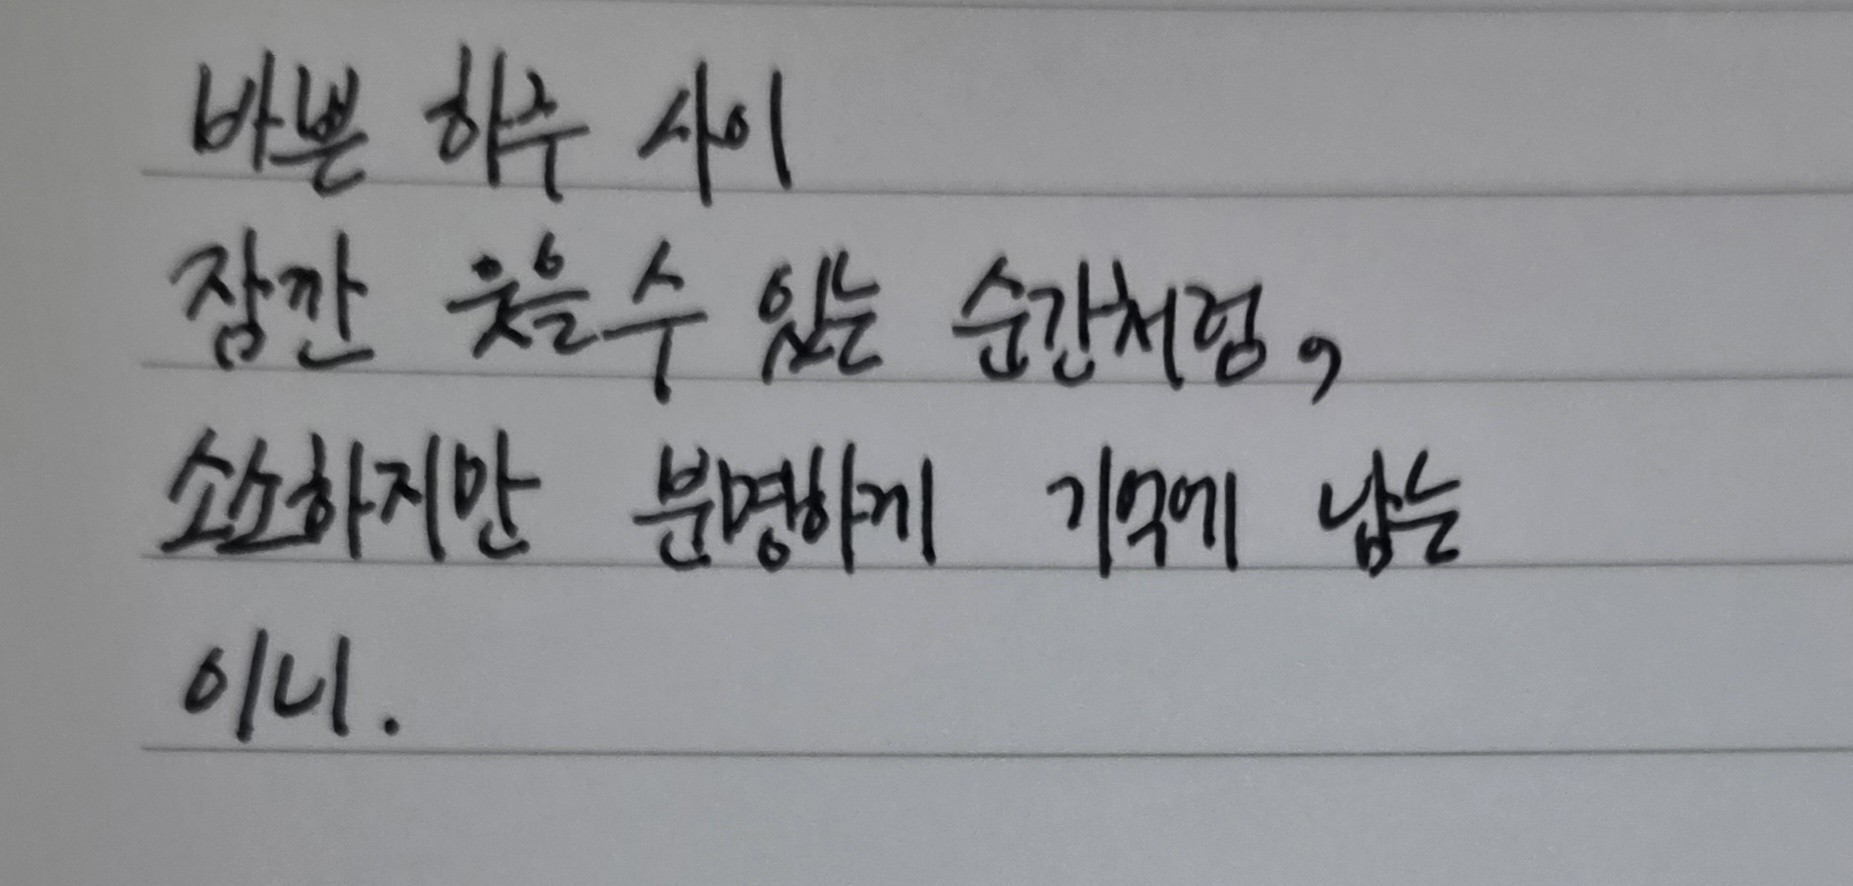 바쁜 하루 사이
잠깐 웃을 수 있는 순간처럼,
소소하지만 분명하게 기억에 남는
이니.